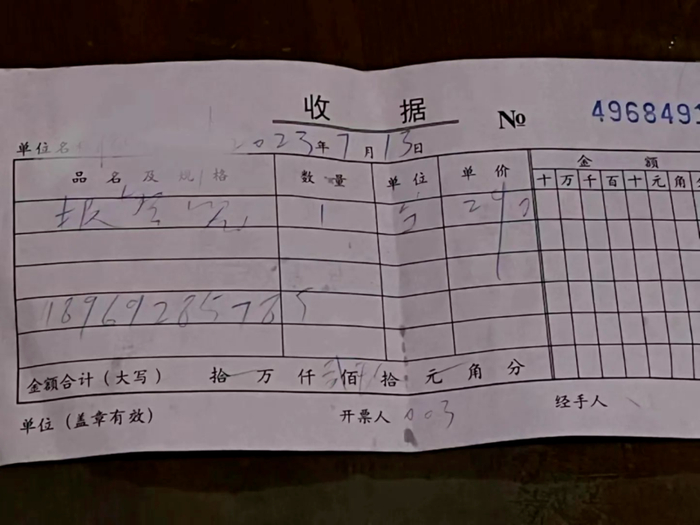 收 据
№ 4968491
单位名 2023年7月13日
品名及规格 数量 单位 单价 金额
十 万 千 百 十 元 角 分
1
18969285785
金额合计（大写） 拾 万 仟 佰 拾 元 角 分
单位（盖章有效） 开票人 003 经手人